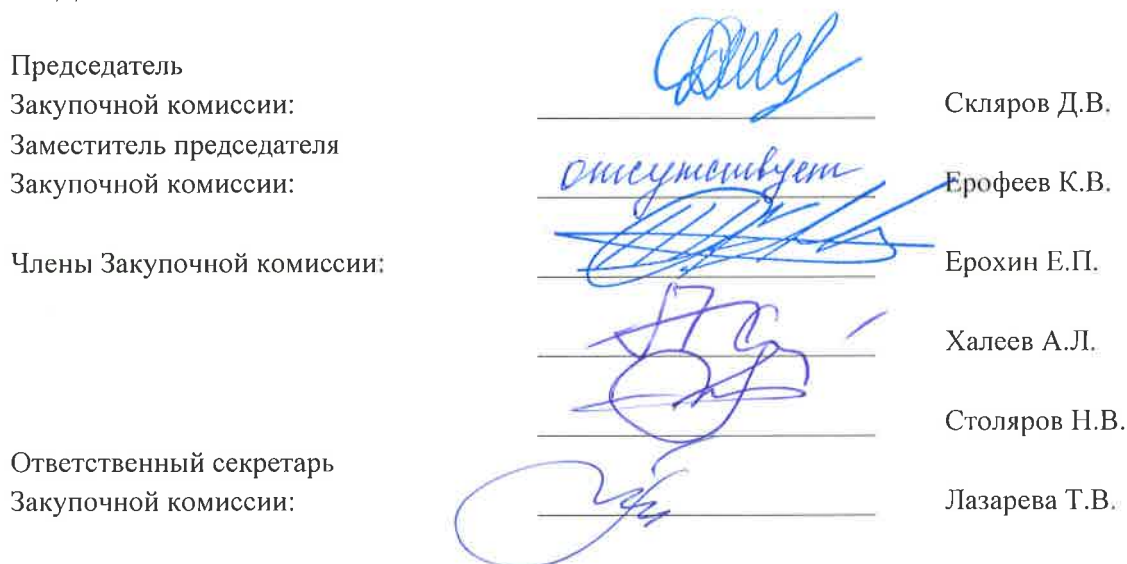 Председатель
Закупочной комиссии: Скляров Д.В.
Заместитель председателя
Закупочной комиссии: отсутствует Ерофеев К.В.
Члены Закупочной комиссии: Ерохин Е.П.
Халеев А.Л.
Столяров Н.В.
Ответственный секретарь
Закупочной комиссии: Лазарева Т.В.